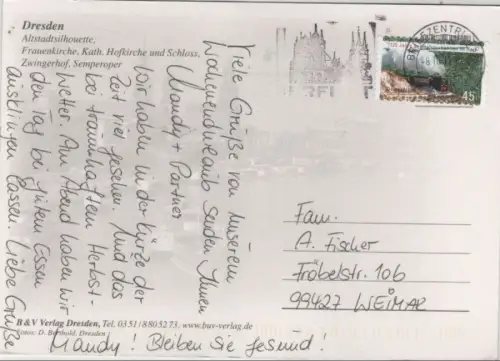 Dresden
Altstadtsilhouette,
Frauenkirche, Kath. Hofkirche und Schloss,
Zwingerhof, Semperoper
Viele Grüße von unserem
Wochenendurlaub senden Ihnen
Mandy + Partner
Wir haben in der Kürze der
Zeit viel gesehen. Und das
bei traumhaftem Herbst-
wetter. Am Abend haben wir
den Tag bei gutem Essen
ausklingen lassen. Liebe Grüße
Mandy! Bleiben Sie gesund!
BRIEFZENTRUM
45
Fam.
A. Fischer
Fröbelstr. 10b
99427 WEIMAR
B & V Verlag Dresden, Tel. 03 51 / 8 80 52 73, www.buv-verlag.de
Dresden